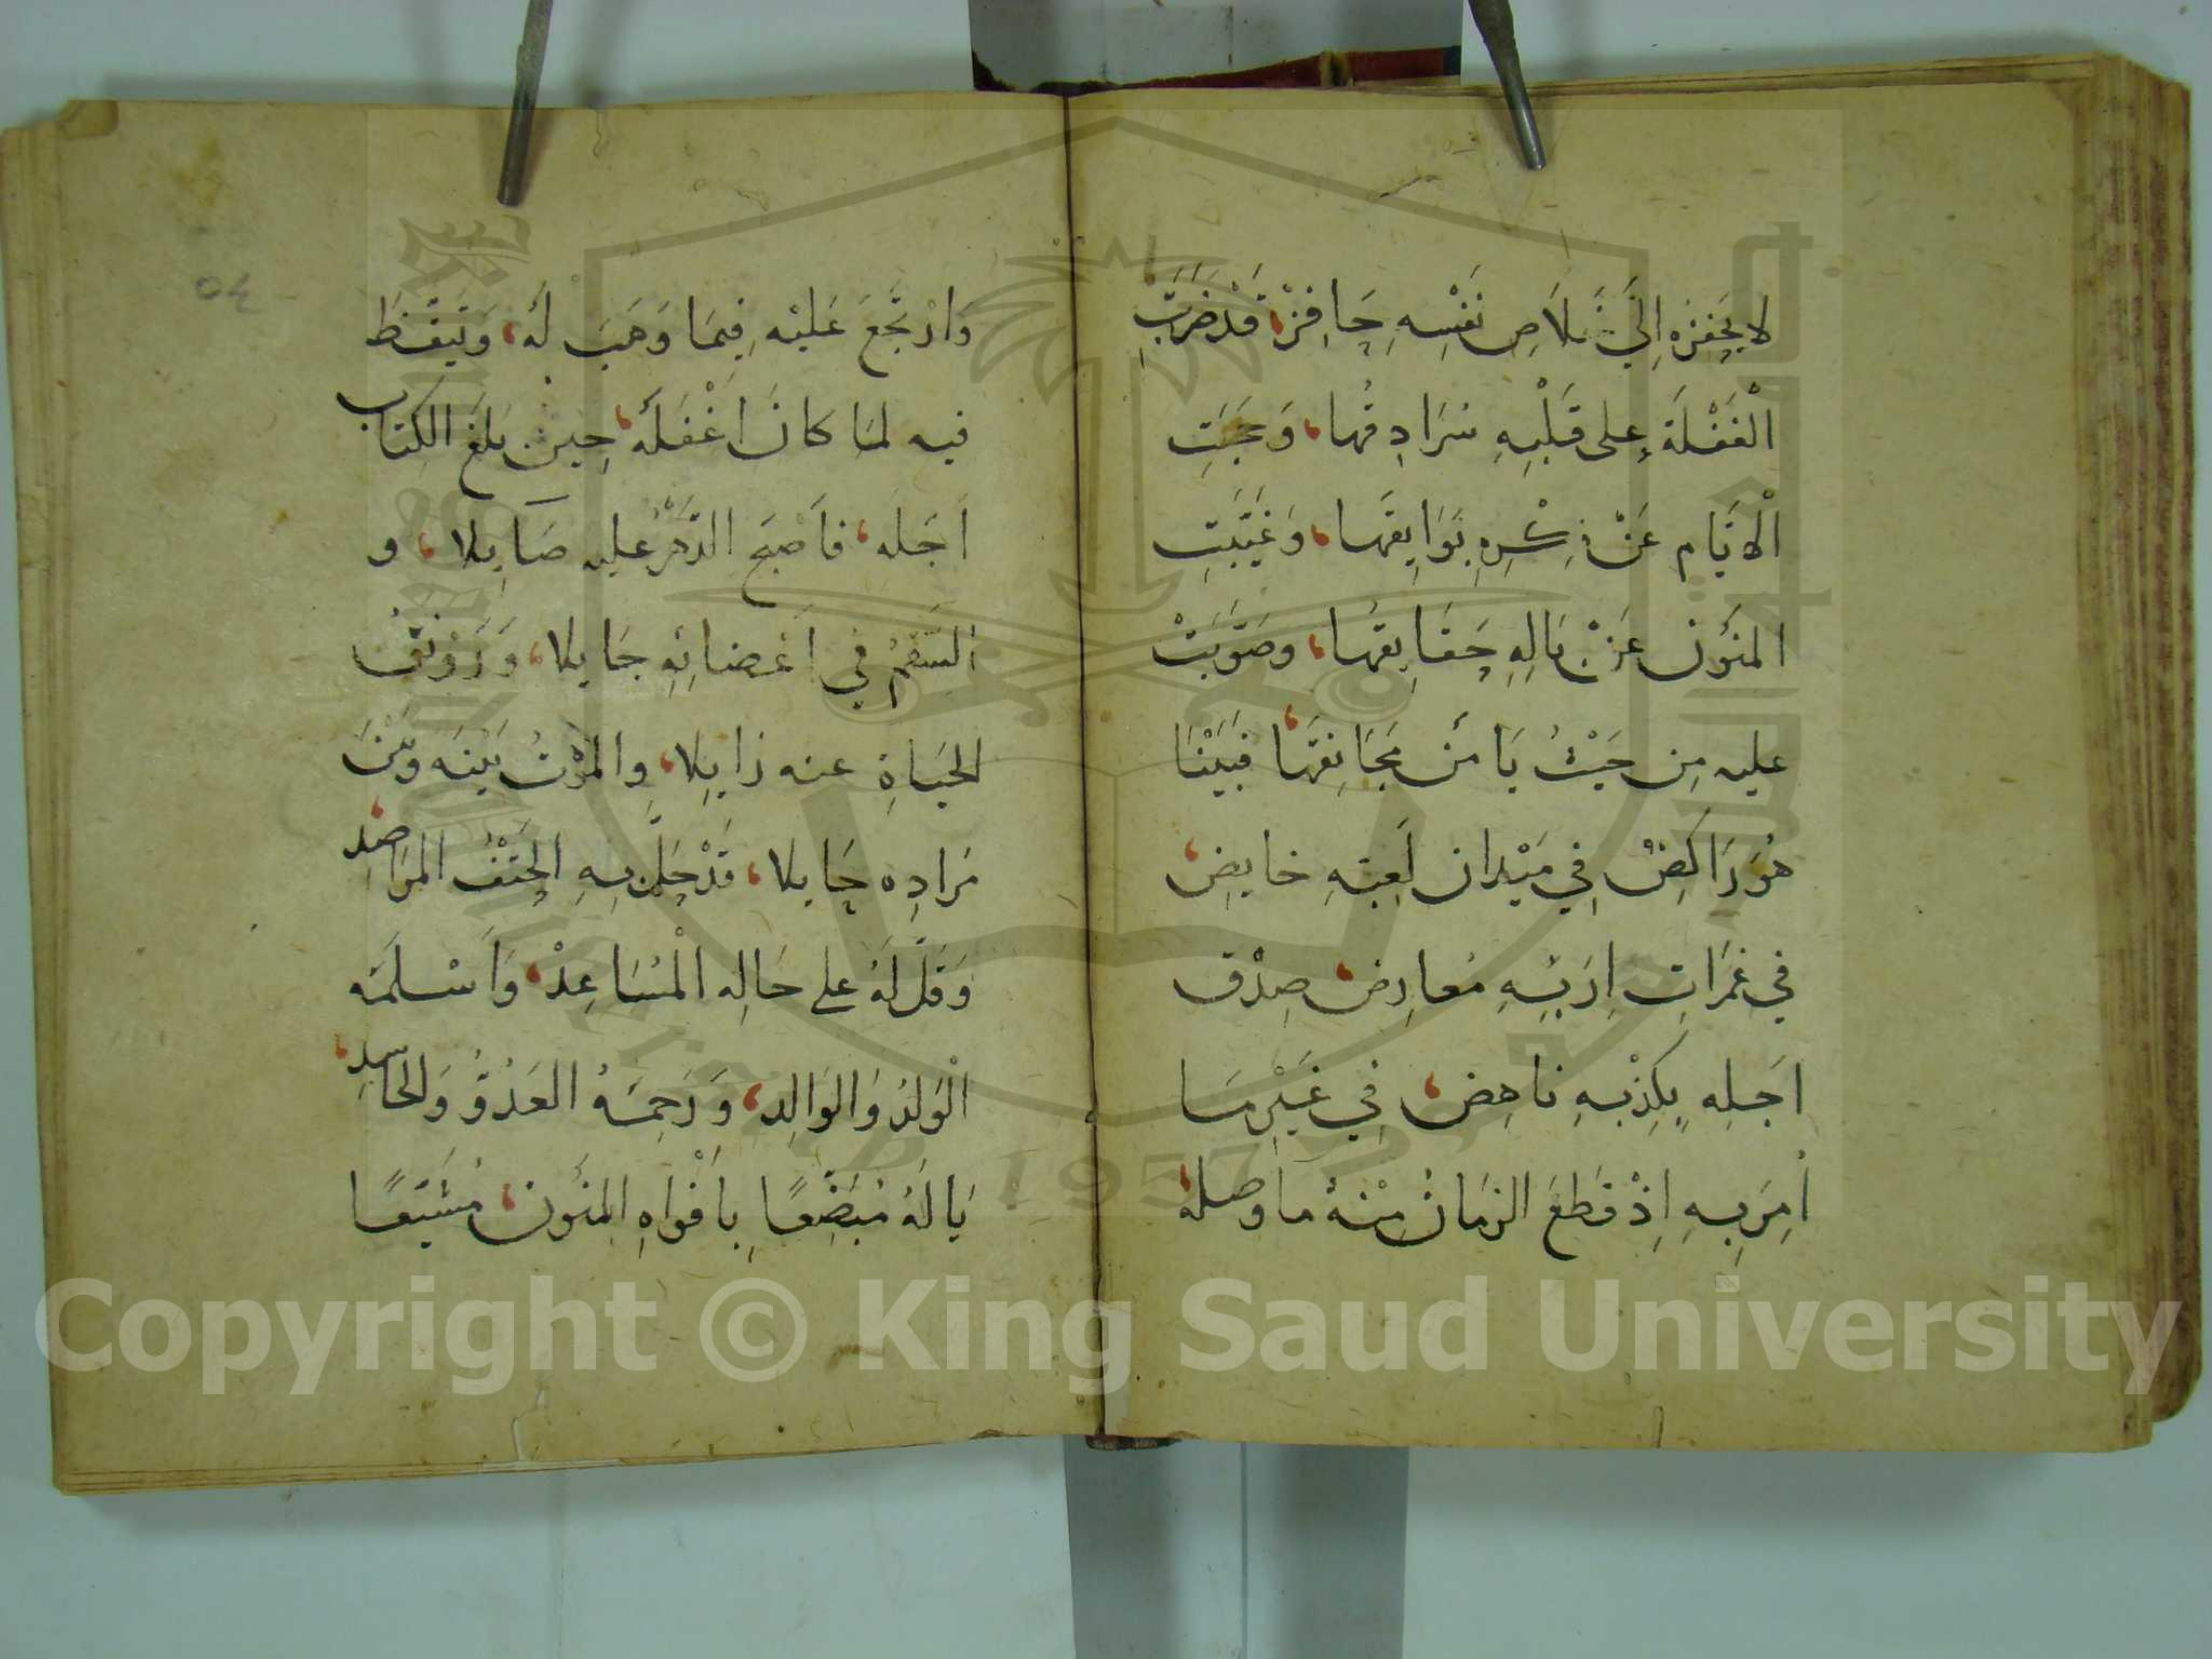 لا يَحفِزه اِلَي خَلَاصِ نَفْسِهِ حَافِزْ، قَدْ ضَرَبَتِ
الْغَفْلَةُ على قَلْبِهِ سَرَادِقُها، وَحَجَبَتِ
الْاَيَّام عَنْ ذِكْرِهِ بَوَايِقَها، وَغَيَّبَتِ
المنَوُن عَنْ بَالِهِ حَقَايِقَها، وصَوَّبَتْ
عليه مِن حَيْثُ يَامَن مَجَانِقَهَا، فبَيْنَا
هُوَ رَاكِضٌ فِي مَيْدان لَعِبِهِ خايِضٌ،
في غَمَرَاتِ اِرَبِهِ مُعارِضٌ، صِدْق
اجَلِه بِكِذْبِهِ ناهِضٌ، فِي غَيْرِ مَا
اُمِرَ بِهِ اِذْ قَطَعَ الزمَانُ مِنْهُ ما وصلهُ،
وَارْتَجَعَ عَلَيْه فِيمَا وَهَبَ لَهُ، وَتَيَقَّظَ
فيه لمَا كانَ اغْفَلَهُ، حِين بَلغَ الكِتَاب
اَجَله، فاَصْبَحَ الدَّهْرُ عليه صَايِلا، و
السَقَمُ فِي اَعْضائِهِ جَايِلا، وَرَوْنَقُ
الحيَاةِ عنه زايِلا، والموْتُ بَيْنَه وَبَيْنَ
مَرَادِه حَايلا، قَدْ حَلَّ بِهِ الحَتْفُ المرَاصِد،
وَقَلَّ لَهُ على حَالِه الْمُسَاعِدْ، وَاَسْلَمَه
الْوَلدُ وَالوَالِد، وَرَحِمَهُ العَدُوُّ وَالحَاسِد،
يَا لَهُ مُبَضَّعًا بِاَفْوَاهِ المنَوُن، مُشَيَّعًا
٥٤
Copyright © King Saud University
1957